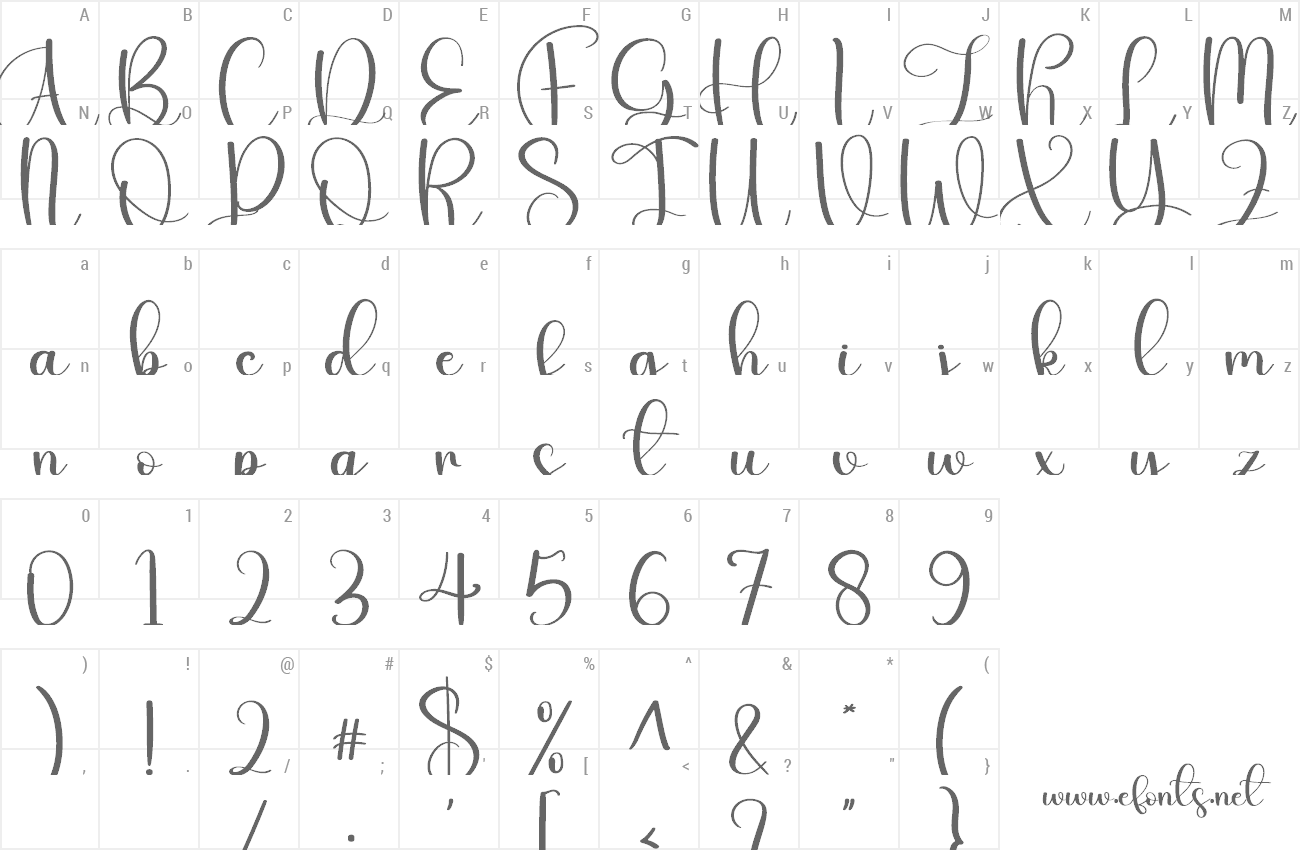 A B C D E F G H I J K L M
A B C D E F G H I J K L M
N O P Q R S T U V W X Y Z
N O P Q R S T U V W X Y Z
a b c d e f g h i j k l m
a b c d e f g h i j k l m
n o p q r s t u v w x y z
n o p q r s t u v w x y z
0 1 2 3 4 5 6 7 8 9
0 1 2 3 4 5 6 7 8 9
) ! @ # $ % ^ & * (
) ! 2 # $ % ^ & * (
, . / ; ' [ < ? " }
/ ; ' [ < ? " }
www.efonts.net